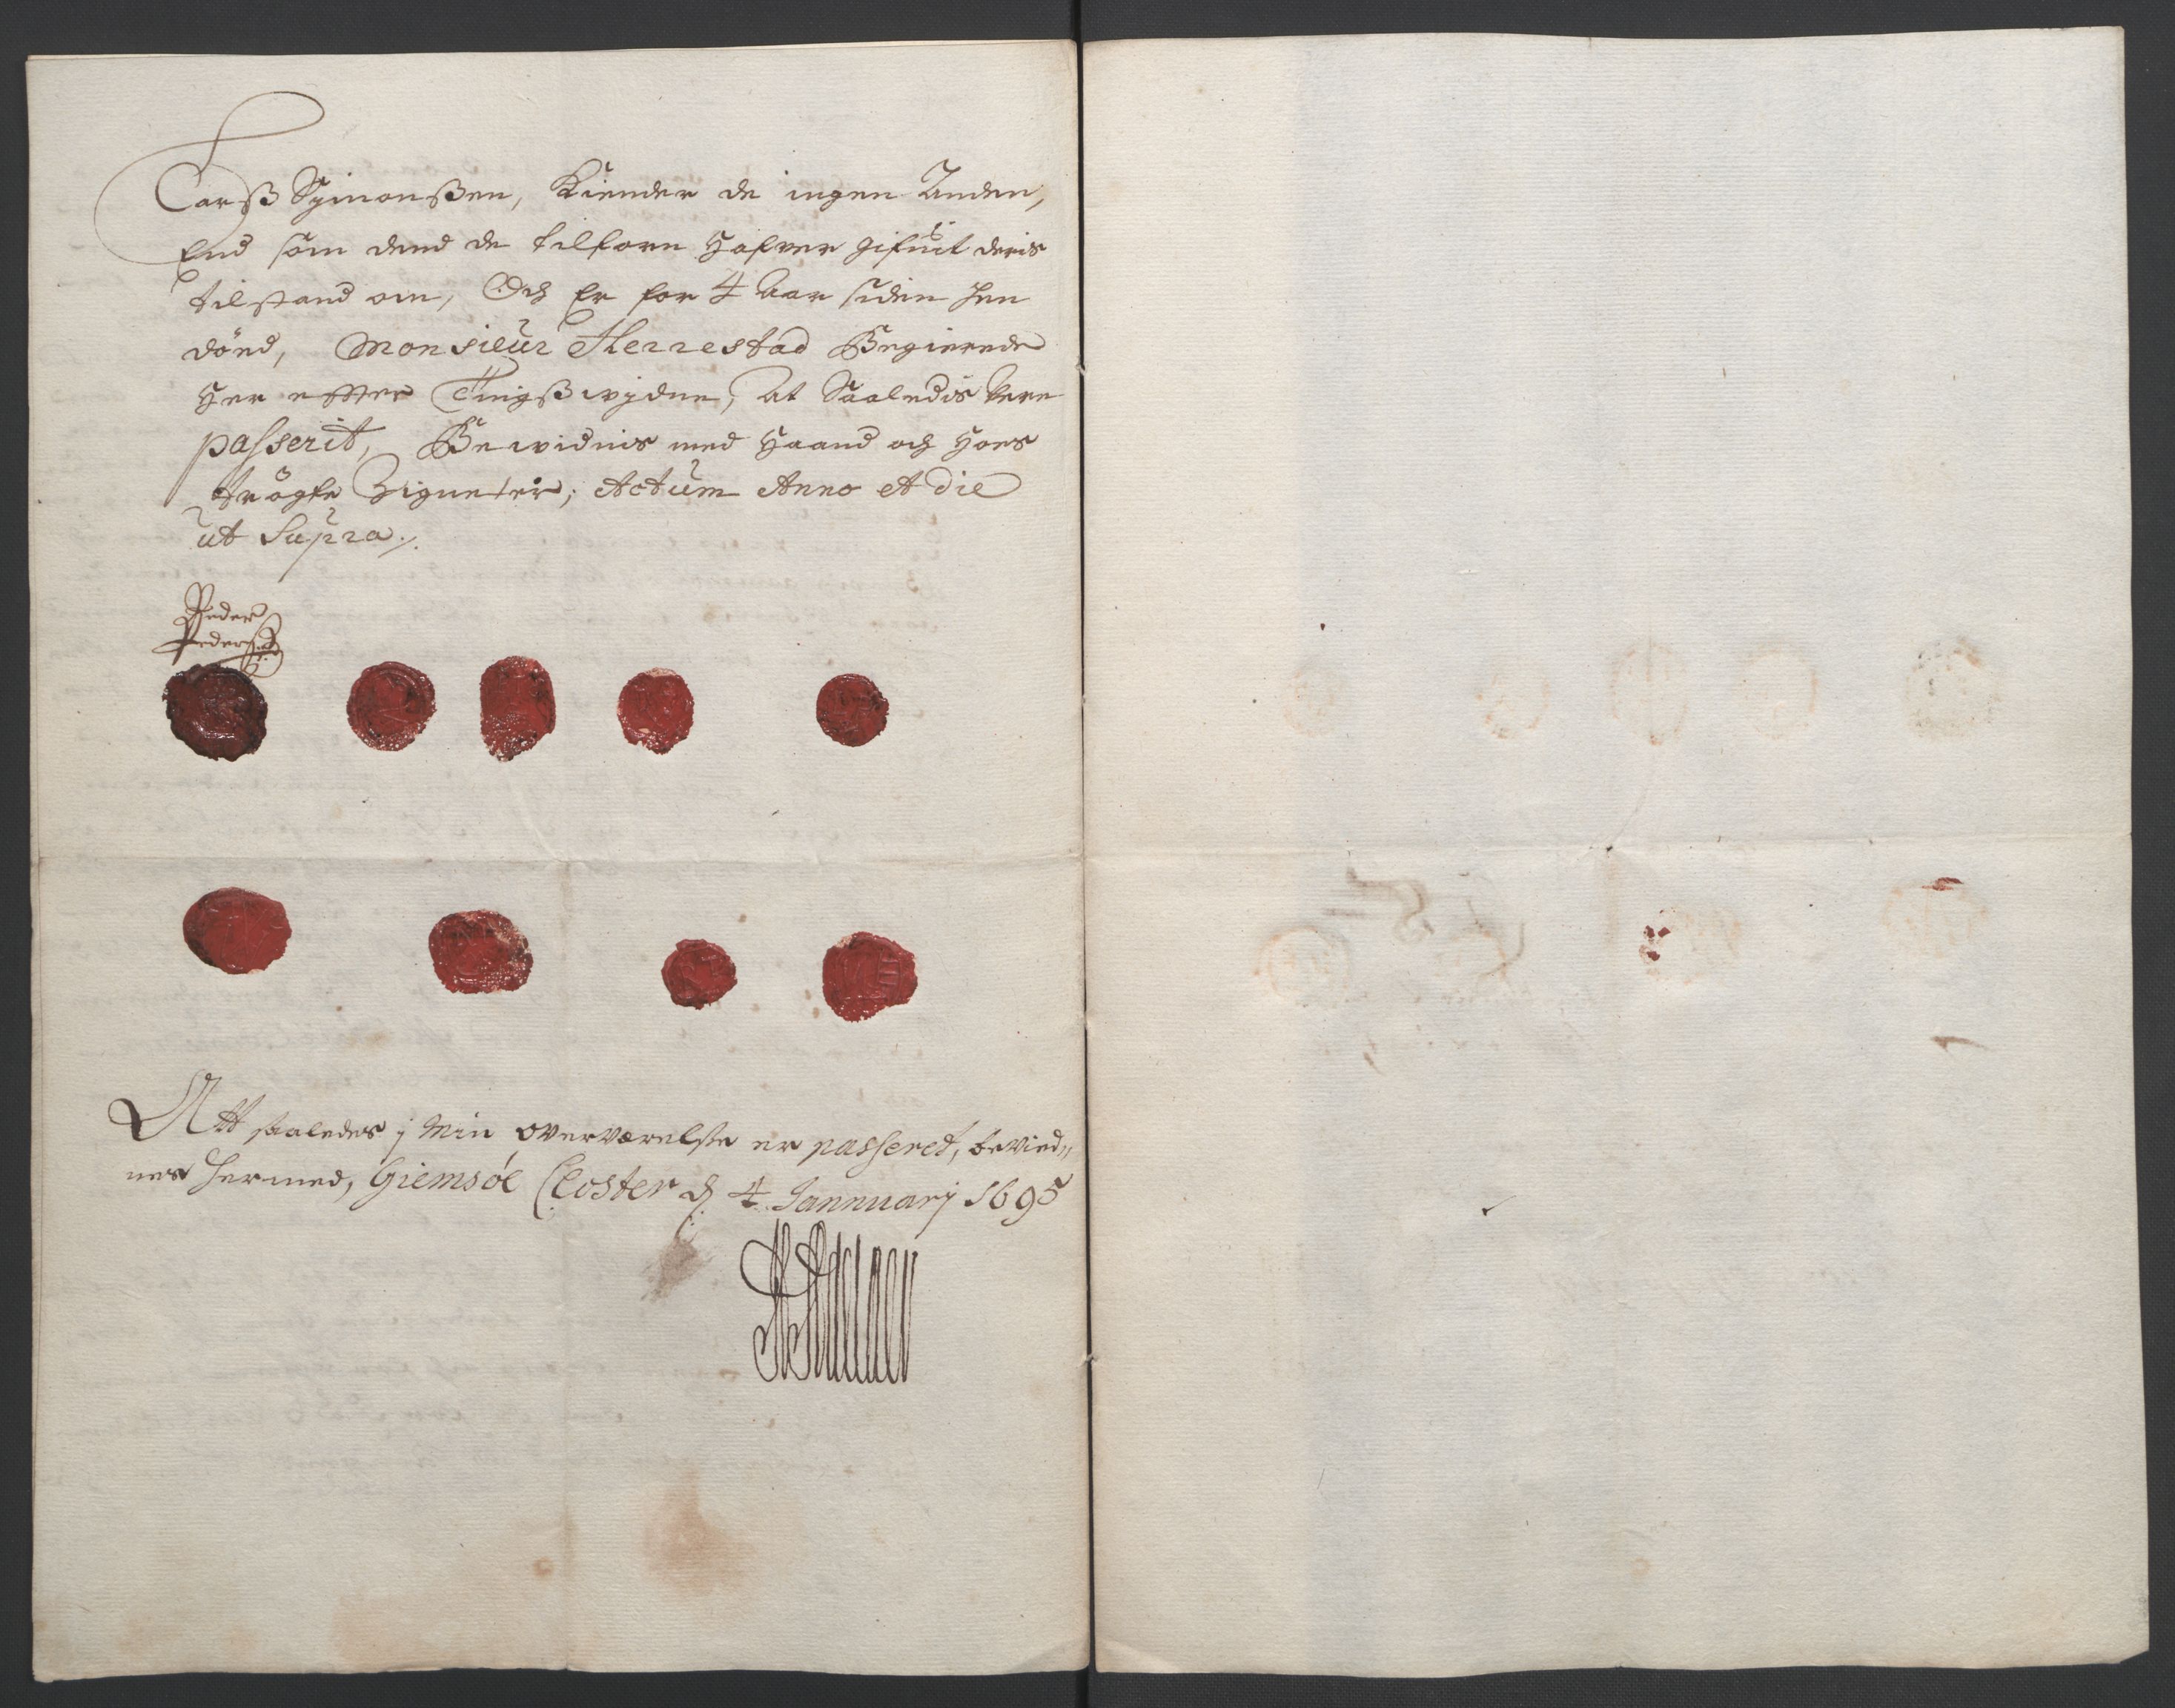 Larß Simonßen, Kiender de ingen Anden,
End som dend de tilforn hafver gifuit deris
tilstand om, Och Er for 4 Aar siden hen
döed, Monsieur Herrestad Begierede
her effter Tingßwidne, At Saaledis Vere
passerit, Bewidnis med Haand och hoes
trögte Zigneter, Actum Anno et die
ut Supra./.
Peder
Pedersen
Att saaledes i Min overværelse er passeret, bevied„
nes hermed, Giemsöe Closter d. 4 Jannuarj 1695